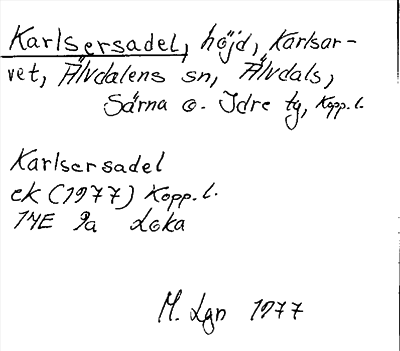 Karlsersadel, höjd, Karlsar-
vet, Älvdalens sn, Älvdals,
Särna o. Idre tg, Kopp.l.
Karlsersadel
ek (1977) Kopp.l.
14E 9a Loka
M. Lgn 1977